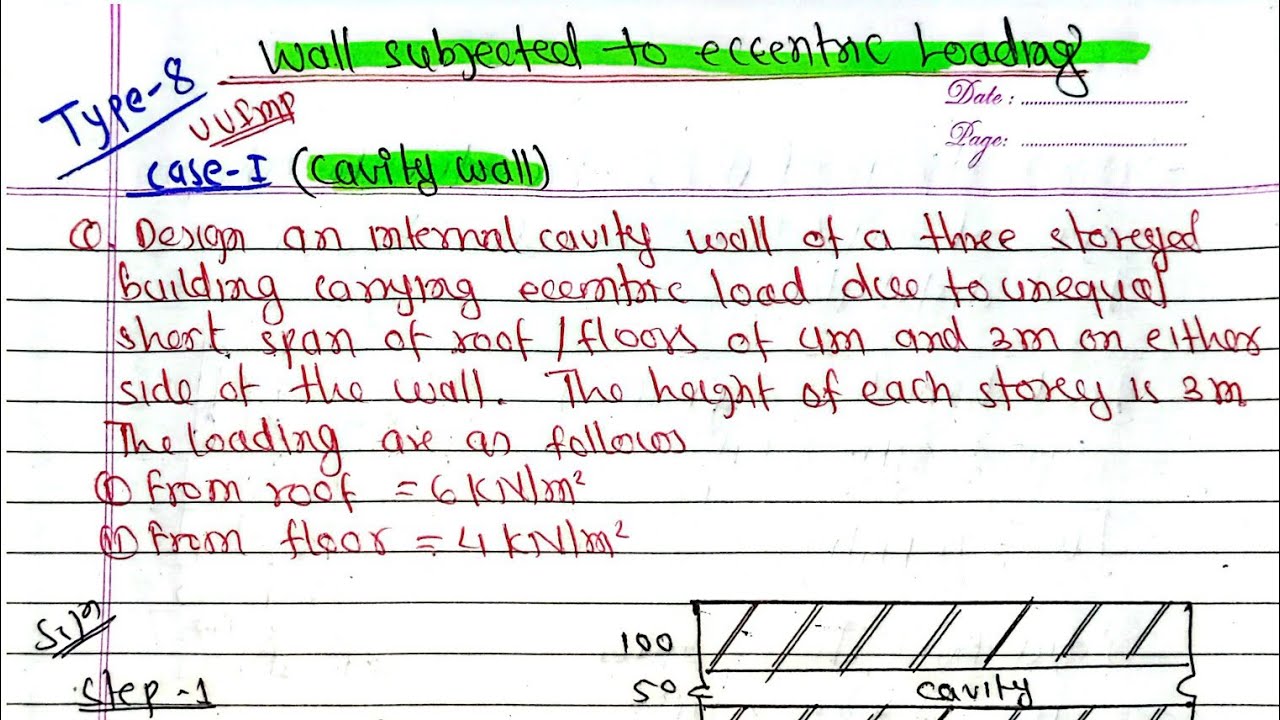 Wall subjected to eccentric Loading
Type-8
VVImp
Date :
Page:
Case-I (Cavity wall)
Q. Design an internal cavity wall of a three storeyed
building carrying eccentric load due to unequal
short span of roof / floors of 4m and 3m on either
side of the wall. The height of each storey is 3m
The loading are as follows
(I) From roof = 6 KN/m²
(II) From floor = 4 KN/m²
Soln
Step-1
100
50
cavity